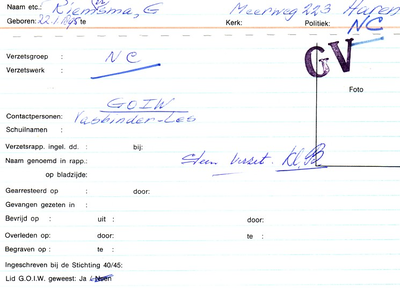 Naam etc.: Riemsma, G Meerweg 223 Haren
Geboren: 22.1. te Kerk: Politiek: NC
Verzetsgroep : NC
Verzetswerk :
GV
Foto
GOIW
Contactpersonen: Vasbinder-Les
Schuilnaam :
Verzetsrapp. ingel. dd. : bij:
Naam genoemd in rapp.: Steun Verzet. Kl.
op bladzijde:
Gearresteerd op : door:
Gevangen gezeten in :
Bevrijd op : uit : door:
Overleden op: door: te :
Begraven op : te :
Ingeschreven bij de Stichting 40/45:
Lid G.O.I.W. geweest: Ja Neen